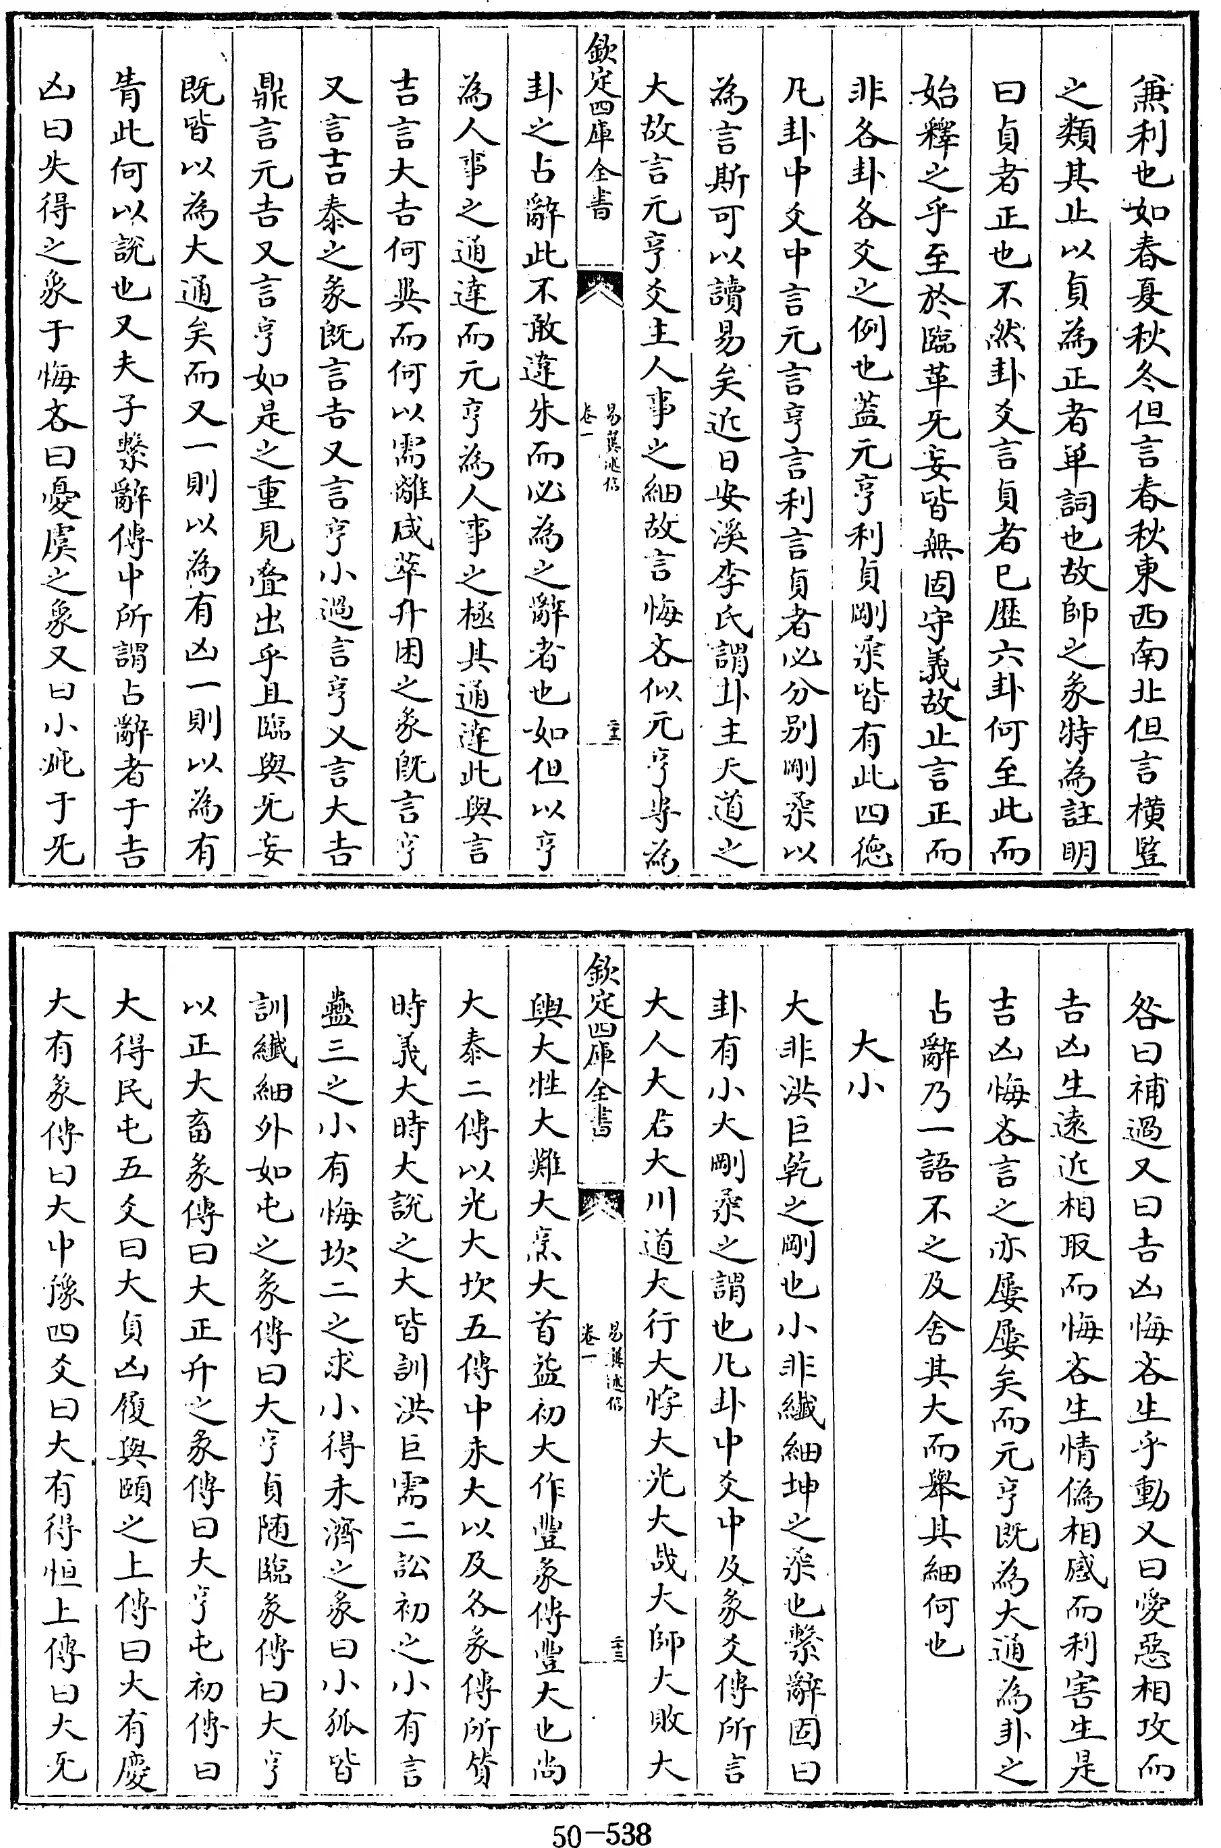 兼利也如春夏秋冬但言春秋東西南北但言橫豎
之類其止以貞為正者单詞也故師之彖特為註明
曰貞者正也不然卦爻言貞者巳歴六卦何至此而
始釋之乎至於臨革旡妄皆無固守義故止言正而
非各卦各爻之例也葢元亨利貞剛柔皆有此四徳
凡卦中爻中言元言亨言利言貞者必分别剛柔以
為言斯可以讀易矣近日安溪李氏謂卦主天道之
大故言元亨爻主人事之細故言悔吝似元亨専為
欽定四庫全書
易翼述信
卷一
卦之占辭此不敢違朱而必為之辭者也如但以亨
為人事之通達而元亨為人事之極其通達此與言
吉言大吉何異而何以需離咸萃升困之彖既言亨
又言吉泰之彖既言吉又言亨小過言亨又言大吉
鼎言元吉又言亨如是之重見叠出乎且臨與旡妄
既皆以為大通矣而又一則以為有凶一則以為有
眚此何以說也又夫子繫辭傳中所謂占辭者于吉
凶曰失得之象于悔吝曰憂虞之象又曰小疵于旡
咎曰補過又曰吉凶悔吝生乎動又曰愛惡相攻而
吉凶生逺近相取而悔吝生情偽相感而利害生是
吉凶悔吝言之亦屢屢矣而元亨既為大通為卦之
占辭乃一語不之及舍其大而舉其細何也
大小
大非洪巨乾之剛也小非纖細坤之柔也繫辭固曰
卦有小大剛柔之謂也凡卦中爻中及彖爻傳所言
大人大君大川道大行大悖大光大战大師大敗大
欽定四庫全書
易翼述信
卷一
輿大牲大難大烹大首益初大作豐彖傳豐大也尚
大泰二傳以光大坎五傳中未大以及各彖傳所贊
時義大時大說之大皆訓洪巨需二訟初之小有言
蠱三之小有悔坎二之求小得未濟之彖曰小狐皆
訓纖細外如屯之彖傳曰大亨貞随臨彖傳曰大亨
以正大畜彖傳曰大正升之彖傳曰大亨屯初傳曰
大得民屯五爻曰大貞凶履與頤之上傳曰大有慶
大有彖傳曰大中豫四爻曰大有得恒上傳曰大旡
50-538